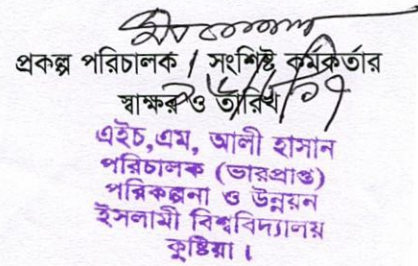 প্রকল্প পরিচালক / সংশ্লিষ্ট কর্মকর্তার
স্বাক্ষর ও তারিখ
এইচ,এম, আলী হাসান
পরিচালক (ভারপ্রাপ্ত)
পরিকল্পনা ও উন্নয়ন
ইসলামী বিশ্ববিদ্যালয়
কুষ্টিয়া।